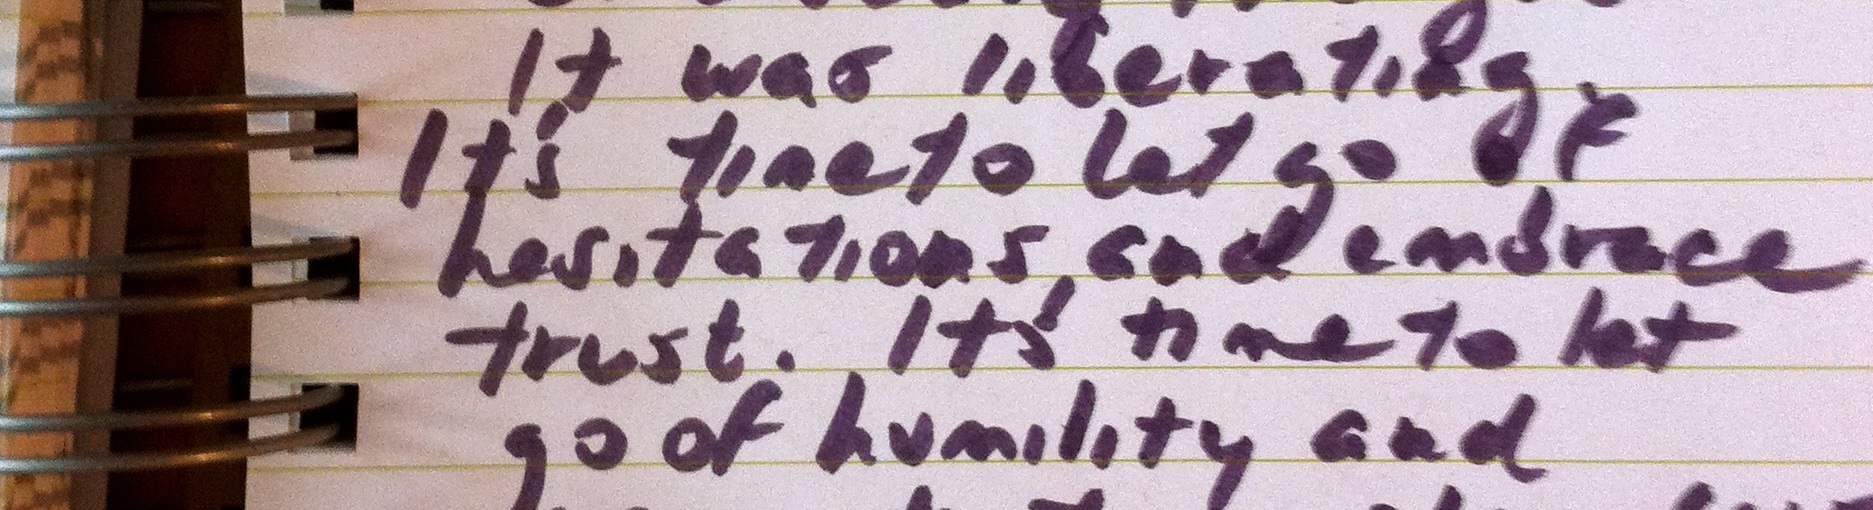 It was liberating.
It's time to let go of
hesitations, and embrace
trust. It's time to let
go of humility and